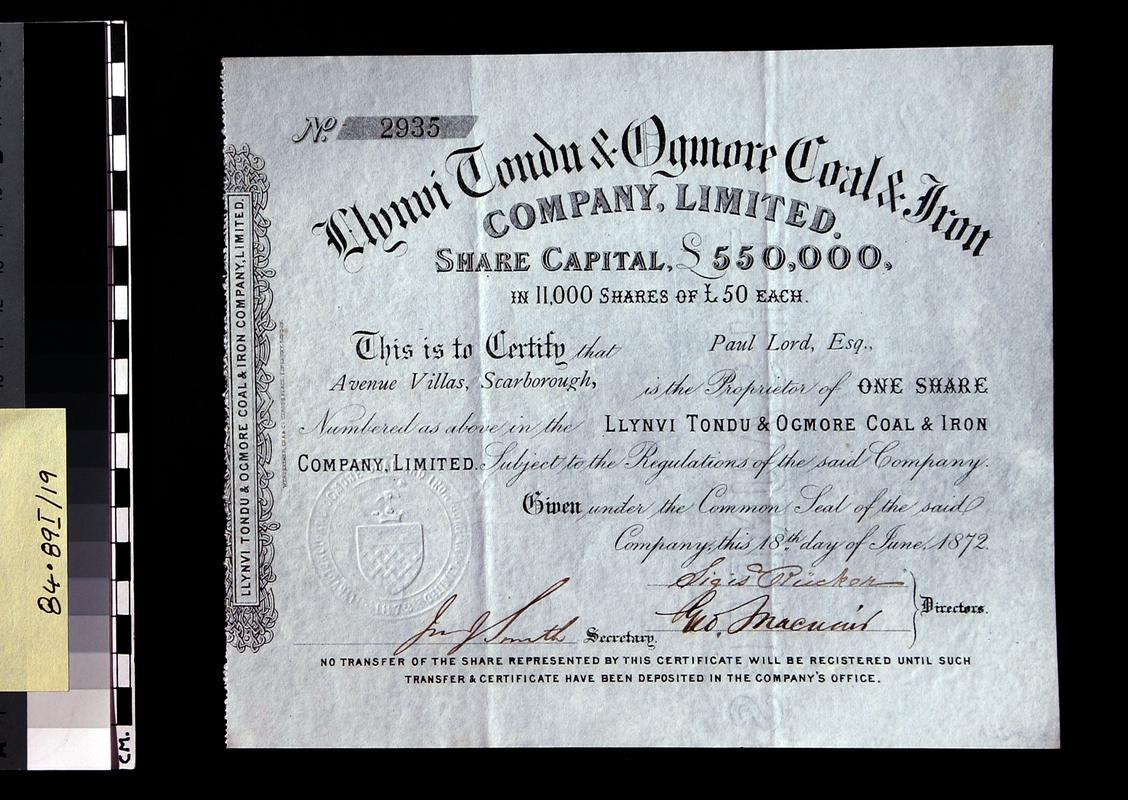 No 2935
Llynvi Tondu & Ogmore Coal & Iron
COMPANY, LIMITED.
SHARE CAPITAL, £550,000,
IN 11,000 SHARES OF £50 EACH.
This is to Certify that Paul Lord, Esq.,
Avenue Villas, Scarborough, is the Proprietor of ONE SHARE
Numbered as above in the LLYNVI TONDU & OGMORE COAL & IRON
COMPANY, LIMITED. Subject to the Regulations of the said Company.
Given under the Common Seal of the said
Company, this 18th day of June, 1872.
Sigis Rücker
Geo. Macnair Directors.
Jn J Smith Secretary.
NO TRANSFER OF THE SHARE REPRESENTED BY THIS CERTIFICATE WILL BE REGISTERED UNTIL SUCH
TRANSFER & CERTIFICATE HAVE BEEN DEPOSITED IN THE COMPANY'S OFFICE.
LLYNVI TONDU & OGMORE COAL & IRON COMPANY, LIMITED.
1872
84.89I/19
CM.